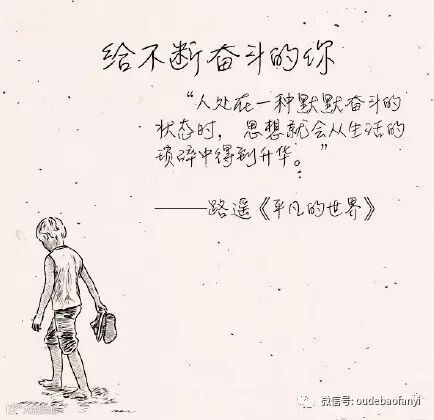 给不断奋斗的你
“人处在一种默默奋斗的
状态时，思想就会从生活的
琐碎中得到升华。”
——路遥《平凡的世界》
微信号: oudebaofanyi